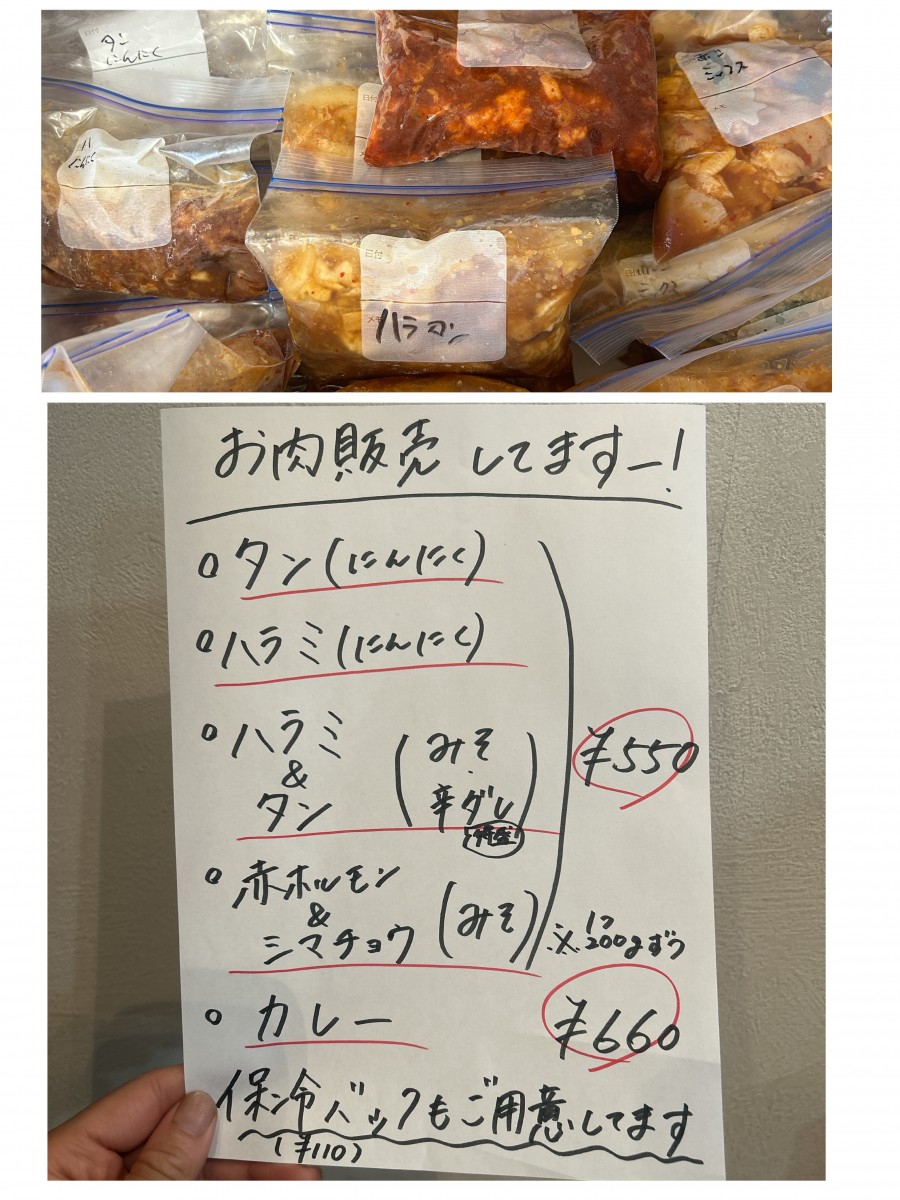 タン
にんにく
ハ
にんにく
日付
ホン
ミックス
メモ
日付
メモ
ハラタン
日付
ミックス
お肉販売してますー!
タン(にんにく)
ハラミ(にんにく)
ハラミ
&
タン
(みそ
辛ダレ)
¥550
赤ホルモン
&
シマチョウ
(みそ)
※1つ
200gずつ
カレー
¥660
保冷バックもご用意してます
(¥110)